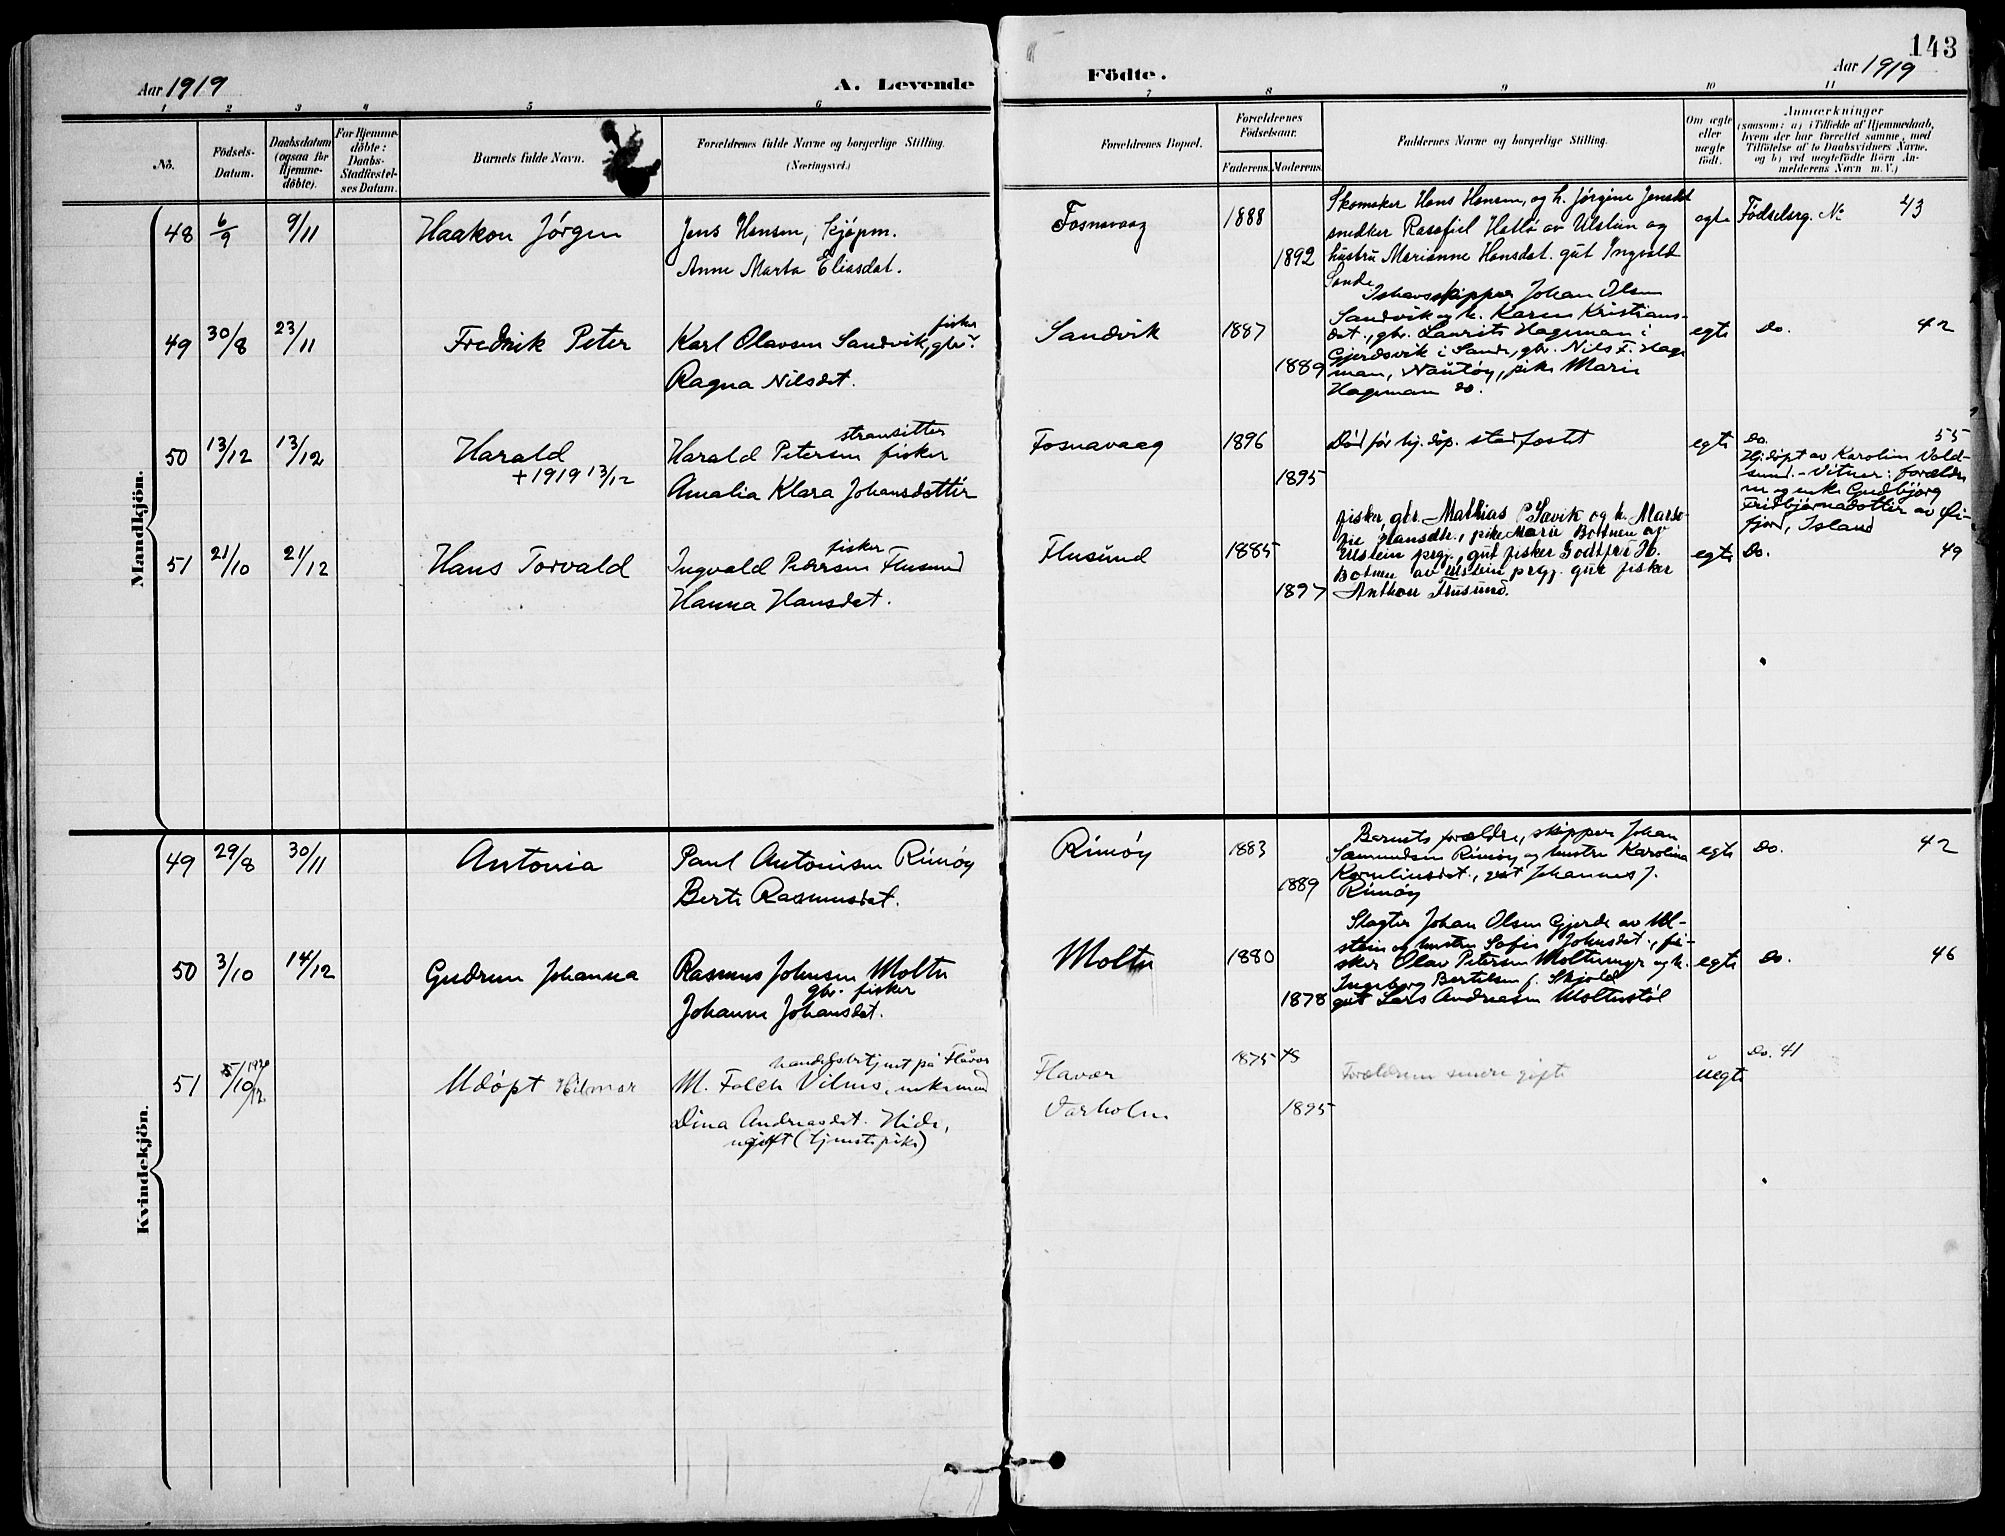 143
Aar 1919
A. Levende
Födte.
Aar 1919
1 2 3 4 5 6 7 8 9 10 11
No.
Födsels-
Datum.
Daabsdatum
(ogsaa for
Hjemme-
döbte).
For Hjemme-
döbte:
Daabs-
Stadfæstel-
ses Datum.
Barnets fulde Navn.
Forældrenes fulde Navne og borgerlige Stilling.
(Næringsvei.)
Forældrenes Bopæl.
Forældrenes
Födselsaar.
Faderens. Moderens.
Faddernes Navne og borgerlige Stilling.
Om ægte
eller
uægte
födt.
Anmærkninger
(saasom: a) i Tilfælde af Hjemmedaab,
hvem der har forrettet samme, med
Tilföielse af to Daabsvidners Navne,
og b) ved uegtefödte Börn An-
melderens Navn m. V.)
Mandkjön.
48 6/9 9/11 Haakon Jørgen
Jens Hansen, kjøpm.
Anne Marta Eliasdat.
Fosnavaag 1888
1892
Skomaker Hans Hansen, og h. Jørgine Jensdat
snedker Rasofiel Hatlø av Ulstein og
hustru Marianne Hansdat. gut Ingvald
Sande
egte Fødselsrg. No 43
49 30/8 23/11 Fredrik Peter
fisker
Karl Olavsen Sandvik, gbr.
Ragna Nilsdat.
Sandvik 1887
1889
Ishavsskipper Johan Olsen
Sandvik og h. Karen Kristians-
dat., gbr. Laurits Hageman i
Gjerdsvik i Sande, gbr. Nils F. Hage
man, Nautøy, pike Marie
Hageman do.
egte Do. 42
50 13/12 13/12 Harald
+ 1919 13/12
stransitter
Harald Petersen fisker
Amalia Klara Johansdottir
Fosnavaag 1896
1895
Død før hj. dp. stadfæstet
egte Do. 55
Hj.døpt av Karoline Vold-
sund. - Vitner: forældre
ne og enke Gudbjørg
Fridbjørnadottir av Øi-
fjord, Island
51 21/10 21/12 Hans Torvald
fisker
Ingvald Petersen Flusund
Hanna Hansdat.
Flusund 1885
1897
fisker, gbr. Mathias P Sævik og h. Marte
Hansdtr., pike Marie Botnen av
Ulstein prgj., gut fisker Godtfred H.
Botnen av Ulstein prgj. gut fisker
Anthon Flusund.
egte Do. 49
Kvindekjön.
49 29/8 30/11 Antonia
Paul Antonisen Rimøy
Berte Rasmusdat.
Rimøy 1883
1889
Barnets forældre, skipper Johan
Samundsen Rimøy og hustru Karolina
Korneliusdat., gut Johannes J.
Rimøy
egte Do. 42
50 3/10 14/12 Gudrun Johanna
Rasmus Johnsen Moltu
gbr. fisker
Johanne Johansdat.
Moltu 1880
1878
Slagter Johan Olsen Gjerde av Ul-
stein og hustru Sofie Johnsdat., fi-
sker Olav Petersen Moltumyr og h.
Ingeborg Bertilsen f. Skjold
gut Lars Andreasen Moltustøl
egte Do. 46
51 5/10 Udøpt Hilmar
handelsbetjent på Flåvær
M. Falch Vilnes, enkemand
Dina Andreasdat. Hide,
ugift (tjenestepike)
Flavær
Varholm
1875
1895
Forældrene senere gifte
uegte Do. 41